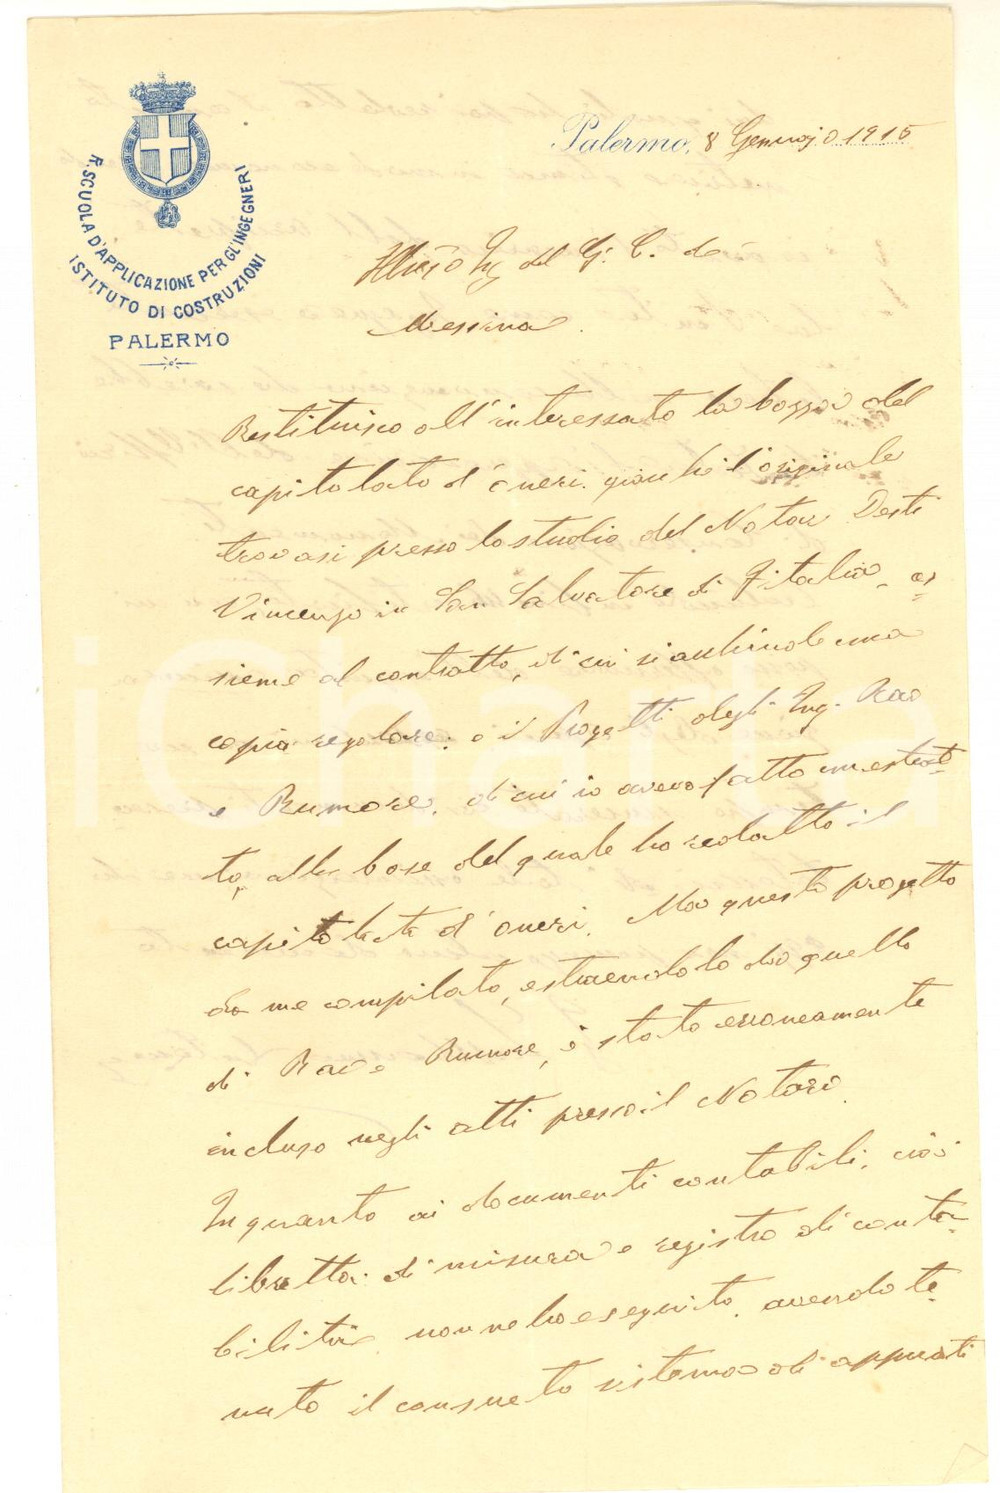 R. SCUOLA D'APPLICAZIONE PER GL'INGEGNERI
ISTITUTO DI COSTRUZIONI
PALERMO
Palermo, 8 Gennajo 1915
del G. C. di
Messina.
Restituisco all'interessato la bozza del
capitolato d'oneri. giacchè l'originale
trovasi presso lo studio del Notar Desti
Vincenzo in San Salvatore di Fitalia, as=
sieme al contratto, di cui si acchiude una
copia regolare: e il Progetti degli Ing. Rao
e Rumore, di cui io avevo fatto un estrat=
to, alla base del quale ho redatto il
capitolato d'oneri. Ma questo progetto
da me compilato, estraendolo da quello
di Rao e Rumore, è stato erroneamente
incluso negli atti presso il Notaro.
In quanto ai documenti contabili, cioè
libretta di misura e registro di conta=
bilità non ne ho eseguito, avendo te=
nuto il consueto sistema di appunti
iCharta